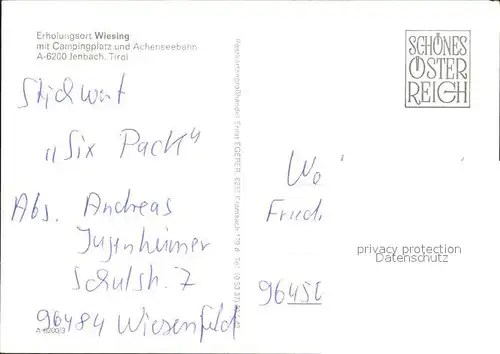 Erholungsort Wiesing
mit Campingplatz und Achenseebahn
A-6200 Jenbach, Tirol
SCHÖNES
ÖSTER
REICH
Stichwort
"Six Pack"
Abs. Andreas
Jugenheimer
Schulstr. 7
96484 Wiesenfeld
A 6200/3
Wo
Fried
96450
privacy protection
Datenschutz